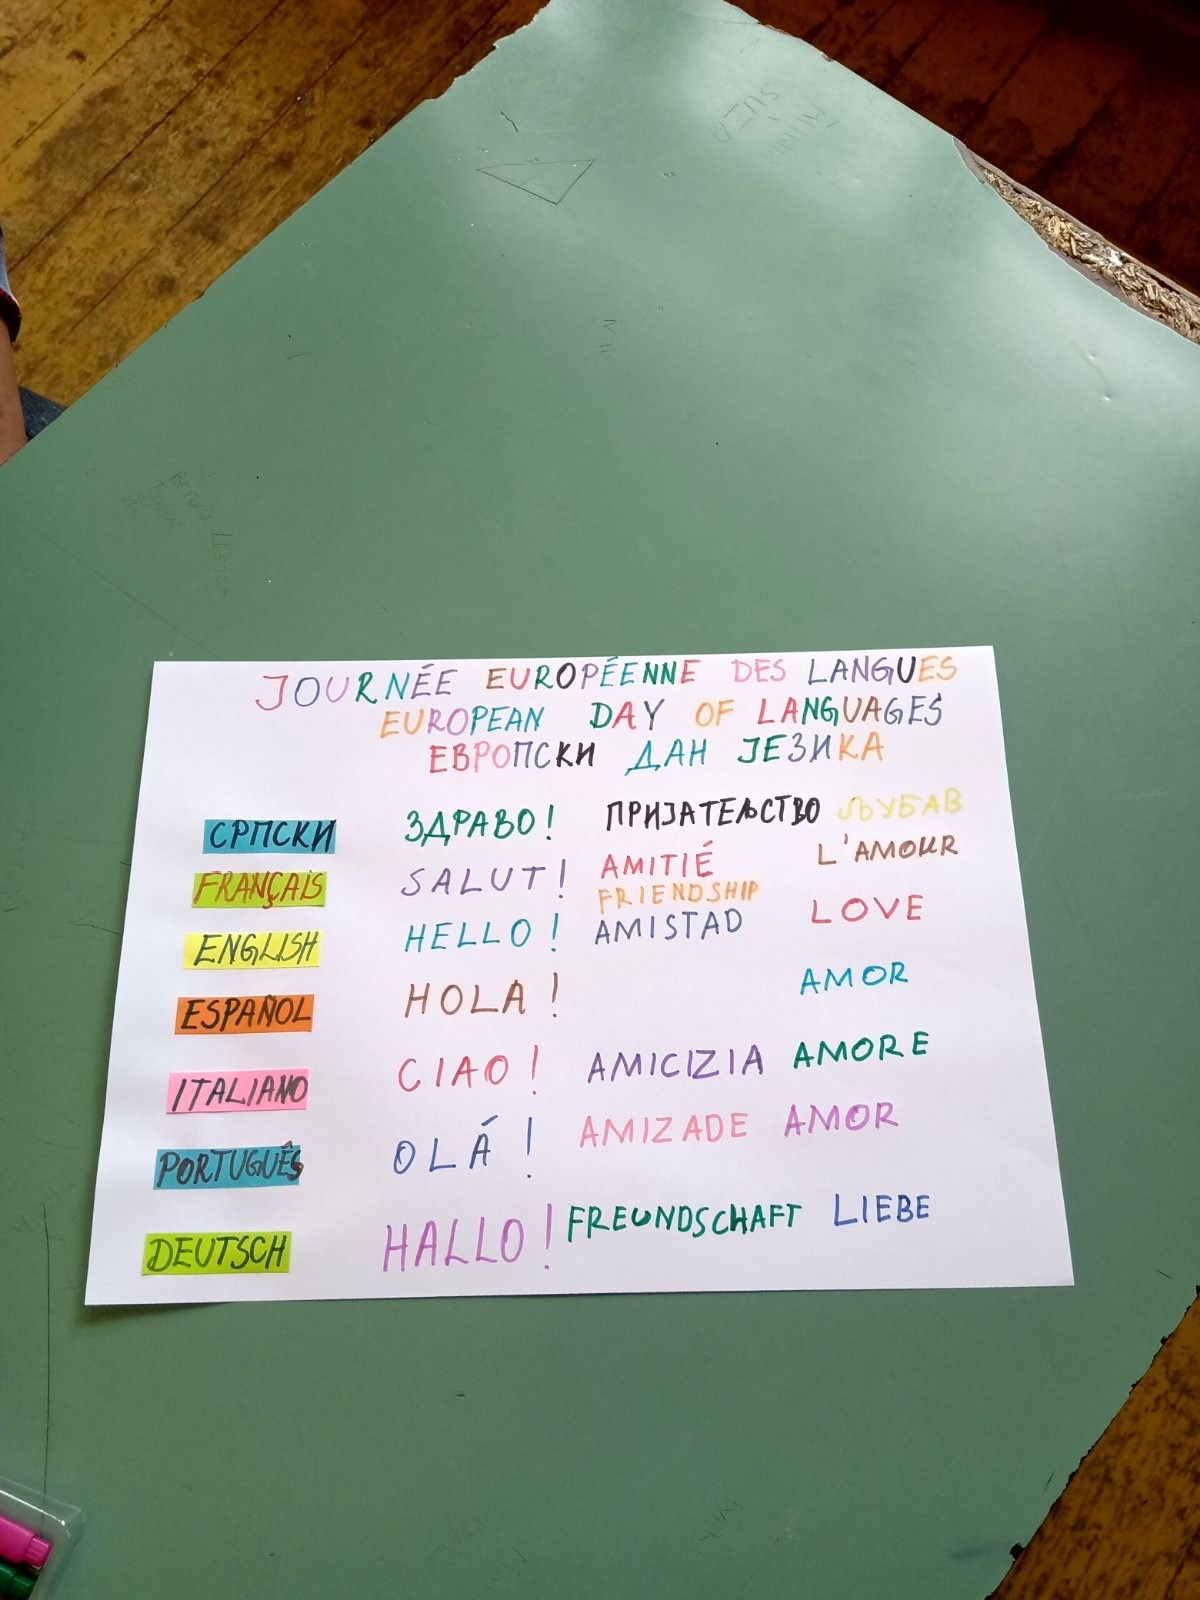 JOURNÉE EUROPÉENNE DES LANGUES
EUROPEAN DAY OF LANGUAGES
ЕВРОПСКИ ДАН ЈЕЗИКА
СРПСКИ ЗДРАВО! ПРИЈАТЕЉСТВО ЉУБАВ
FRANÇAIS SALUT! AMITIÉ L'AMOUR
FRIENDSHIP
ENGLISH HELLO! AMISTAD LOVE
ESPAÑOL HOLA! AMOR
ITALIANO CIAO! AMICIZIA AMORE
PORTUGUÊS OLÁ! AMIZADE AMOR
DEUTSCH HALLO! FREUNDSCHAFT LIEBE